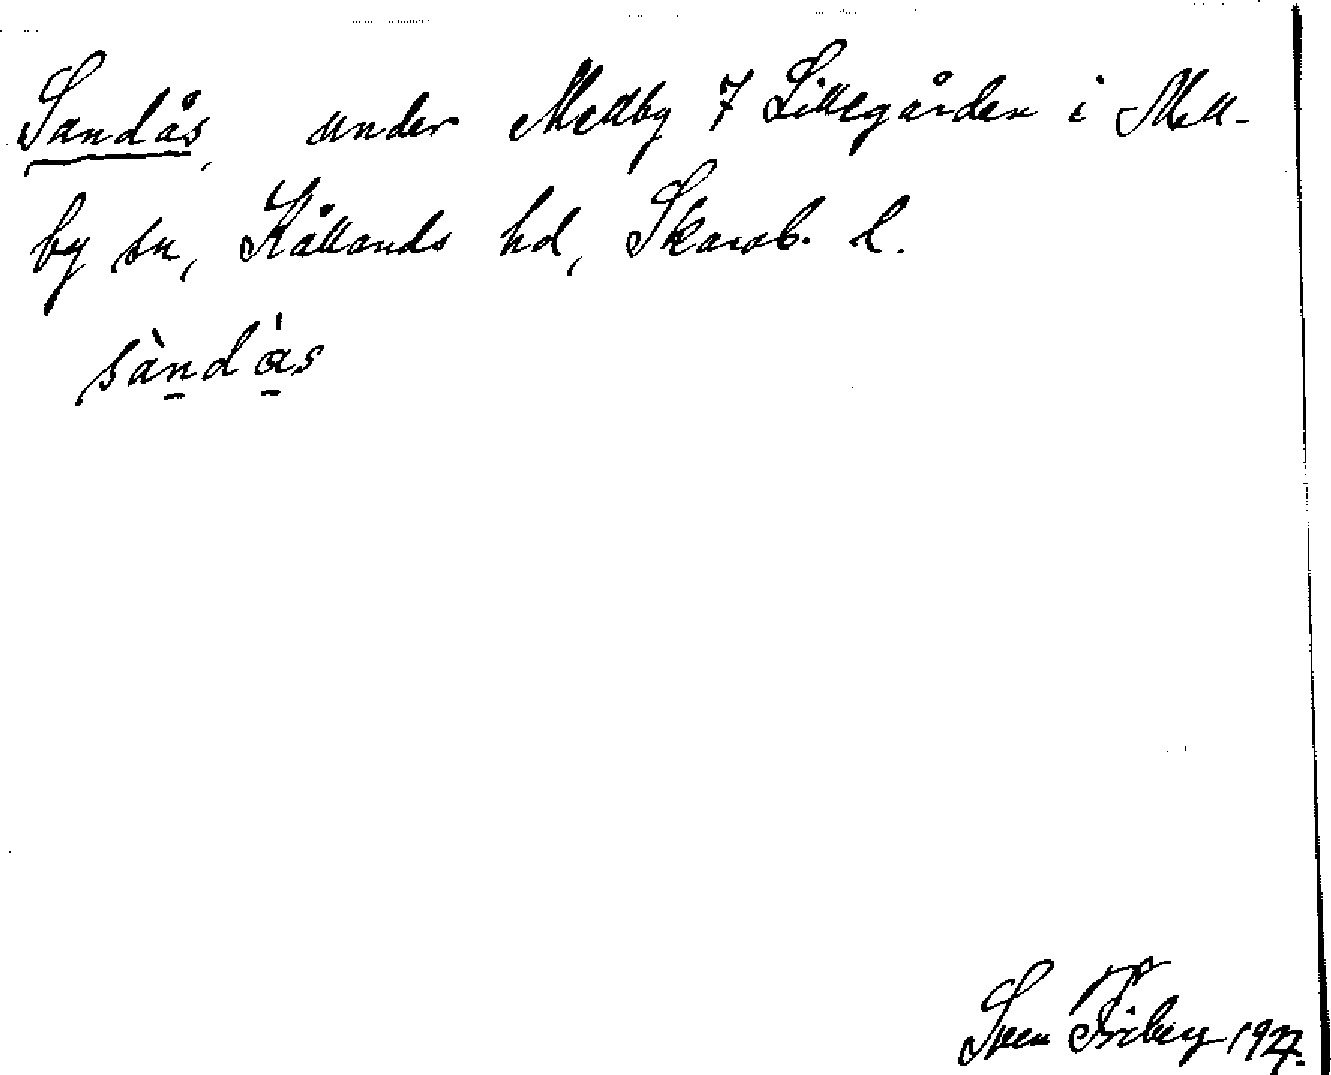 Sandås, under Mellby 7 Lillegården i Mell-
by sn, Kållands hd, Skarab. l.
sàndås
Sven Friberg 1927.